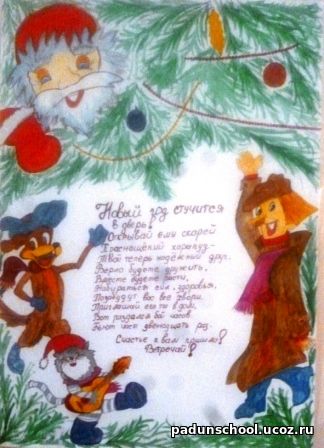 Новый год стучится
в дверь!
Открывай ему скорей
Краснощёкий карапуз-
Твой теперь надёжный друг.
Верно будете дружить,
Вместе будете расти,
Набираться сил, здоровья,
Позовут вас все двери.
Приглашай его ты в дом,
Вот раздался бой часов.
Бьют часы двенадцать раз
Счастье к вам пришло!
Встречай!
padunschool.ucoz.ru